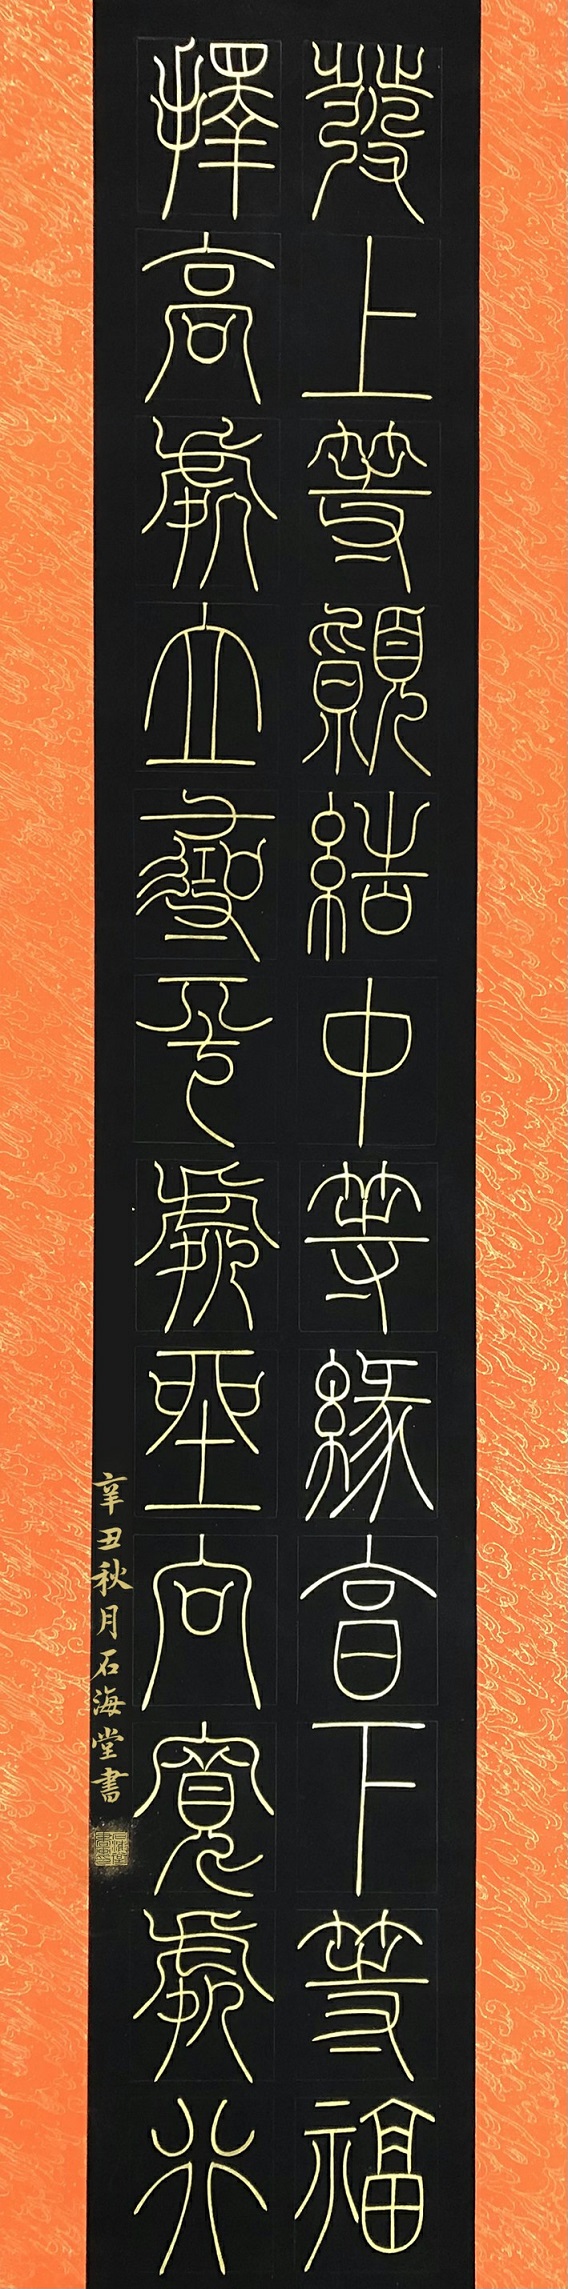 發上等願結中等緣享下等福
擇高處立尋平處坐向寬處行
辛丑秋月石海堂書